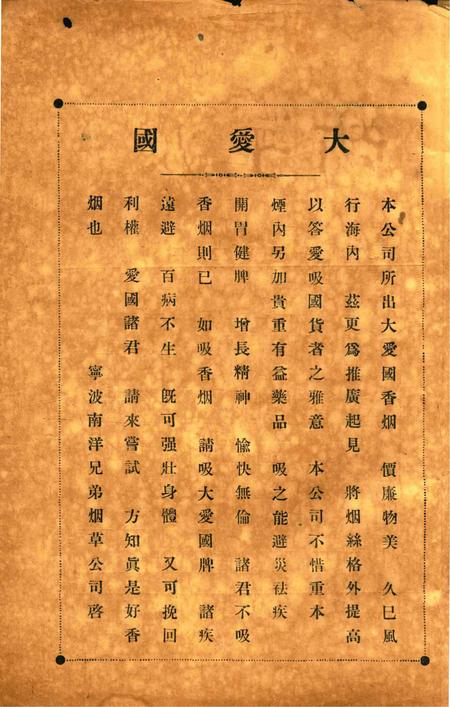 大愛國
本公司所出大愛國香烟　價廉物美　久已風
行海內　茲更爲推廣起見　將烟絲格外提高
以答愛吸國貨者之雅意　本公司不惜重本
煙內另加貴重有益藥品　吸之能避災祛疾
開胃健脾　增長精神　愉快無倫　諸君不吸
香烟則已　如吸香烟　請吸大愛國牌　諸疾
遠避　百病不生　旣可强壯身體　又可挽回
利權　愛國諸君　請來嘗試　方知眞是好香
烟也　　　　　寧波南洋兄弟烟草公司啓